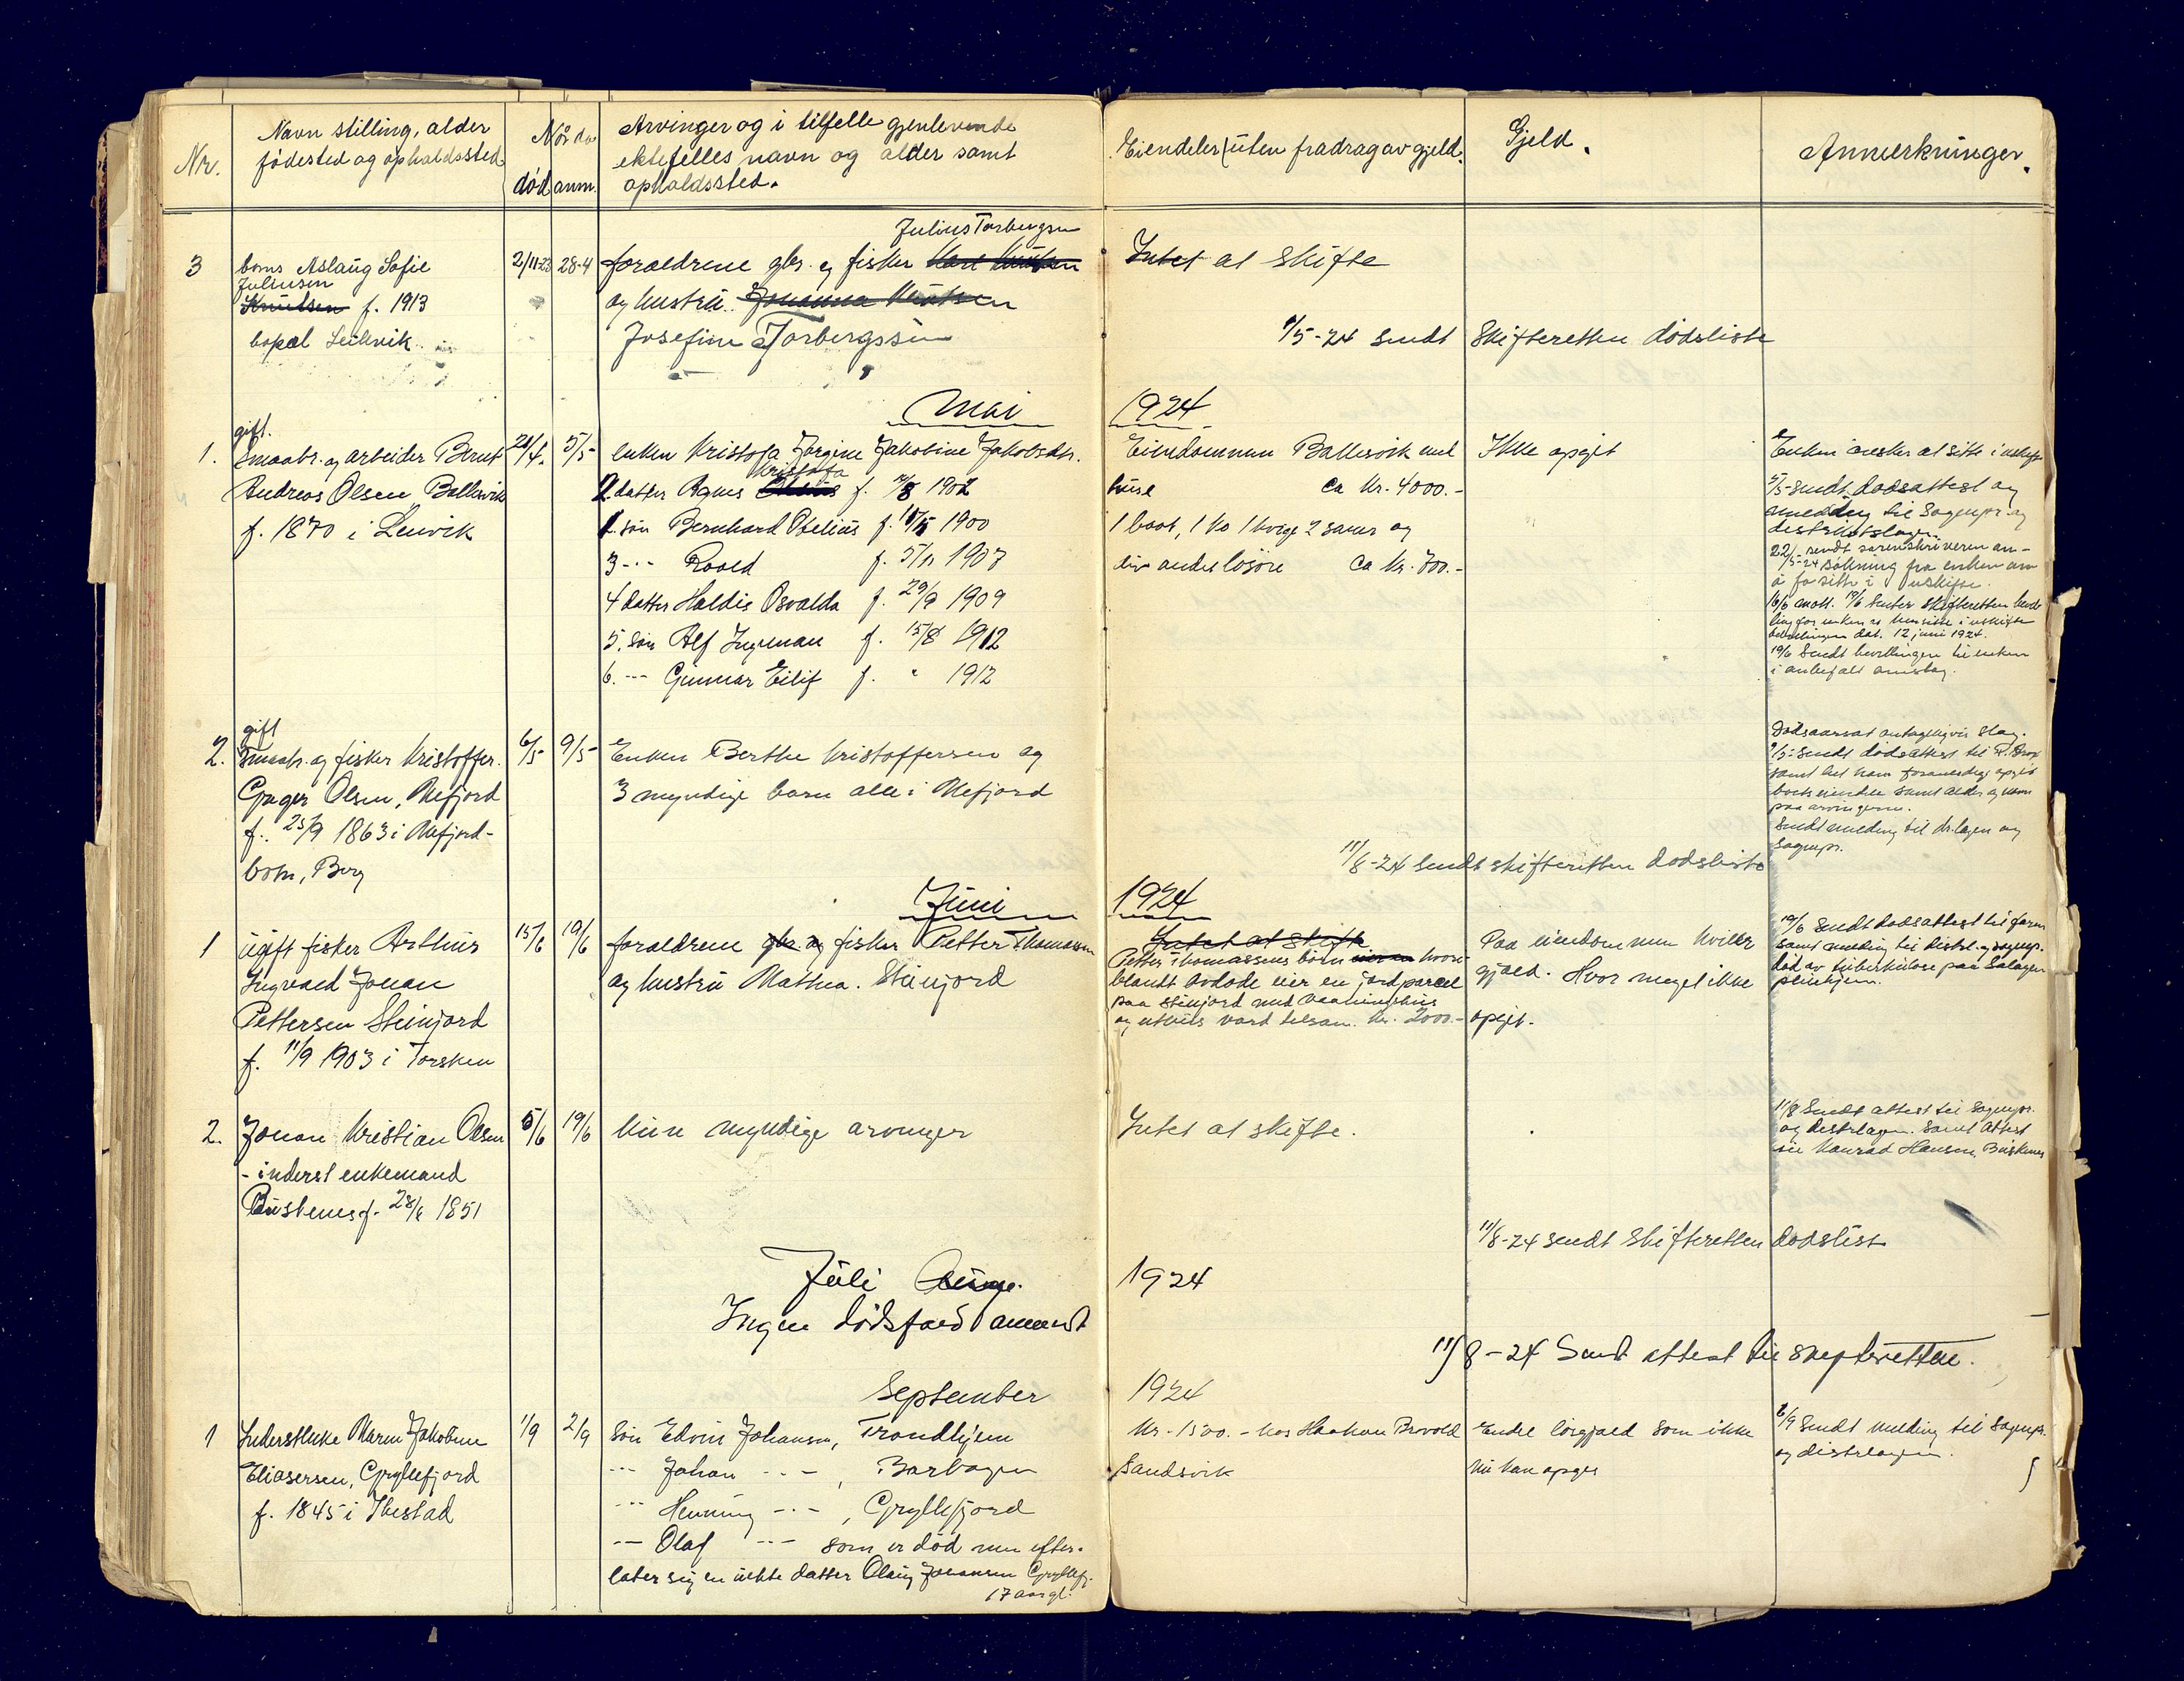 Nr.
Navn stilling, alder
fødested og opholdssted
Når
død anm.
Arvinger og i tilfelle gjenlevende
ektefelles navn og alder samt
opholdssted.
Eiendeler (uten fradrag av gjeld.
Gjeld.
Anmerkninger.
3
barns Aslaug Sofie
Juliusen
Knutsen f. 1913
bopæl Leikvik
2/11-23
28-4
Julius Torbergsen
foraeldrene gbr. og fisker
og hustru Johanna Knutsen
Josefine Torbergssen
Intet at skifte
1/5-24 sendt skifteretten dødsliste
Mai 1924
1.
gift.
Smaabr. og arbeider Bernt
Andreas Olsen Ballesvik
f. 1870 i Lenvik
5/5
enken Kristofa Jørgine Jakobine Jakobsdtr.
Kristofa
2. datter Agnes f. 1902
1. søn Bernhard Obelius f. 1900
3 --- Roald f. 5/11 1907
4 datter Haldis Osvalda f. 29/9 1909
5. søn Alf Ingeman f. 15/8 1912
6. --- Gunnar Eilif f. " 1912
Eiendommen Ballesvik med
huse ca Kr. 4000.-
1 baat, 1 ko 1 kvige 2 sauer og
andet løsøre ca Kr. 700.-
Ikke opgit
Enken ønsker at sitte i uskifte
5/5 sendt dødsattest og
melding til Sogнepr. og
distriktslægen.
22/5-24 sendt sorenskriveren an-
søkning fra enken om
å få sitte i uskifte.
16/6 mott. 19/6
bevillingen dat. 12 juni 1924.
19/6 Sendt bevillingen til enken
i anbefalt omslag.
2.
gift
Smaabr. og fisker Kristoffer
Olsen, Mefjord
f. 25/9 1863 i Mefjord-
botn, Berg
6/5
9/5
Enken Berthe Kristoffersen og
3 myndige barn alle i Mefjord
Dødsaarsak antageligvis slag.
9/5 sendt dødsattest til
paa arvingerne.
Sendt melding til dr.lægen og
sognepr.
11/8-24 sendt skifteretten dødsliste
Juni 1924
1
ugift fisker Arthur
Ingvald Johan
Pettersen Steinjord
f. 11/9 1903 i Torsken
15/6
19/6
foraeldrene gbr. og fisker Petter Thomassen
og hustru Mathea. Steinjord
Intet at skifte
Petter Thomassens børn hvori-
blandt avdøde eier en jordparcel
paa Steinjord med vaaningshus
og uthus værd tilsam. kr. 2000.-
Paa eiendommen hviler
gjæld. Hvor meget ikke
opgit.
19/6 sendt dødsattest til faren
samt melding til distrl. og sognepr.
død av tuberkulose paa Salangen
pleiehjem.
2.
Johan Kristian Olsen
- inderst enkemand
Buskenes f. 1851
5/6
19/6
kun myndige arvinger
Intet at skifte.
11/8 Sendt attest til Sognepr.
og distrlægen. Samt attest
til Konrad Hansen, Buskenes
11/8-24 sendt skifteretten dødslist.
Juli 1924
Ingen dødsfald anmeldt
11/8-24 Sendt attest til skifteretten.
September 1924
1
Inderstenke Maren Jakobine
Eliasersen, Gryllefjord
f. 1845 i Ibestad
1/9
2/9
Søn Edvin Johansen, Trondhjem
--- Johan ---,
--- Henning ---, Gryllefjord
--- Olaf --- som er død men efter-
later sig en uekte datter Olaug Johansen Gryllefj.
17 aar gl.
Kr. 1500.- hos Haakon Brovold
Sandsvik
Endel løsgjæld som ikke
nu kan opges
2/9 Sendt melding til sognepr.
og distrlægen.